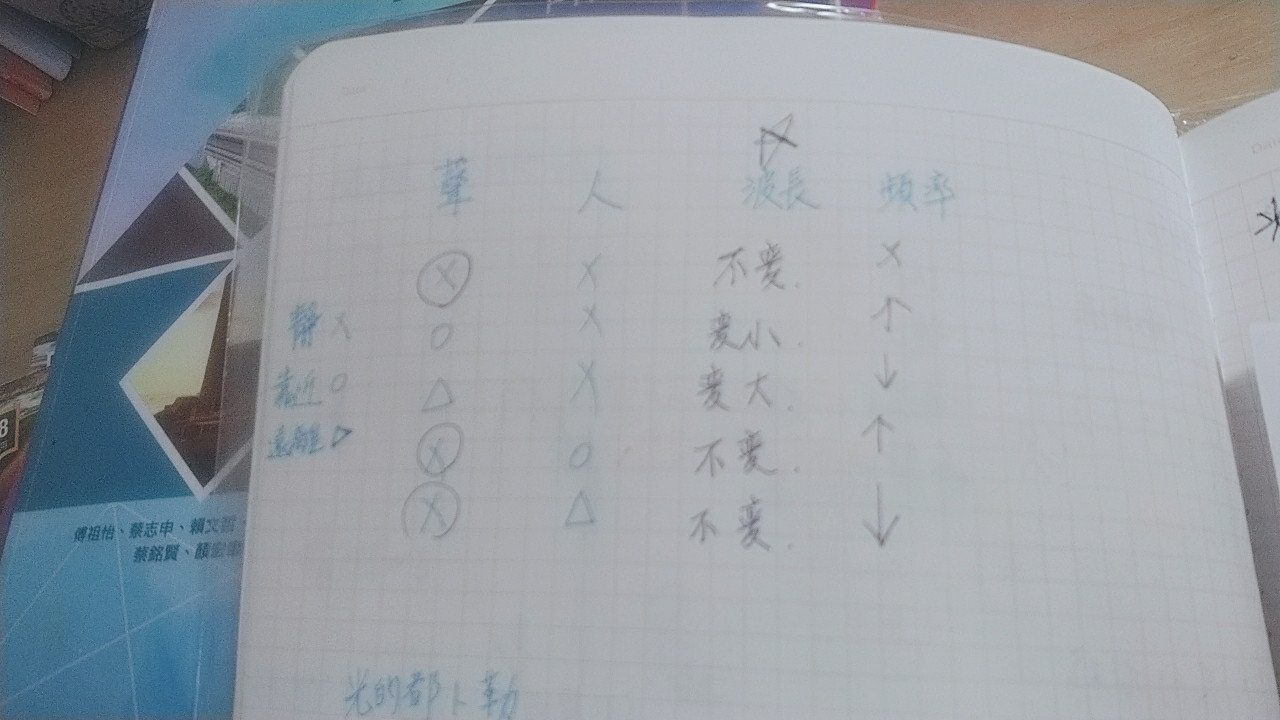 聲 人 波長 頻率
X X 不變. X
靜 X
O X 變小. ↑
靠近 O
△ X 變大. ↓
遠離 △
X O 不變. ↑
X △ 不變. ↓
傅祖怡、蔡志申、賴文哲、
蔡銘賢、顏宏
光的都卜勒